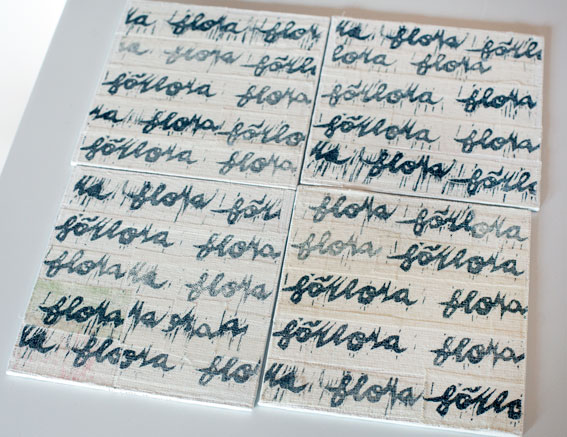 ra flora flora
ra flora förlo
förlora flora
ra flora förlo
förlora flora
ra flora förl
lora flora
förlora flora
förlora flora
ra flora förlo
ra flora förl
förlora flora
flora ra flora
flora ra ora a
ra flora flo
flora förlora
flora förlora
förlora flora
förlora flora
ra flora förlo